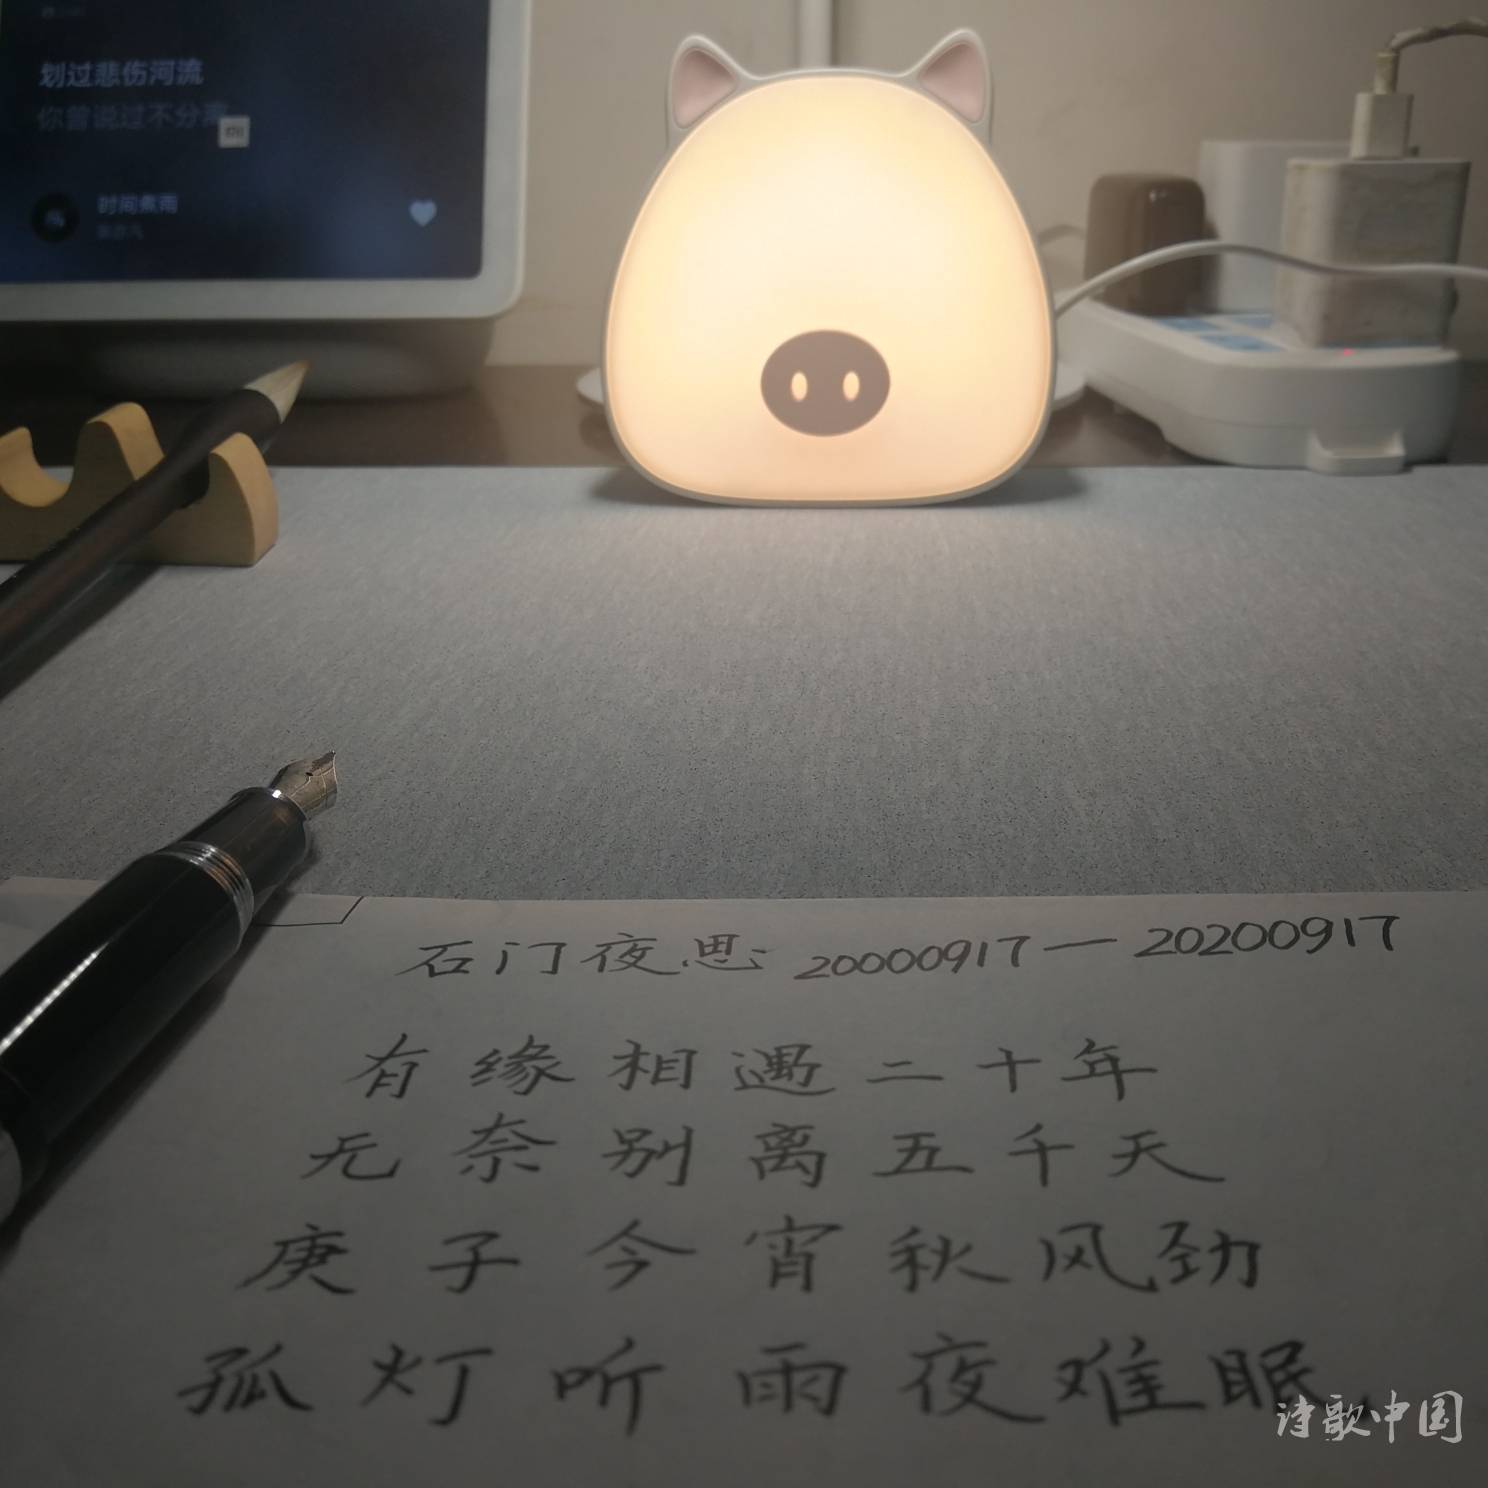 划过悲伤河流
你曾说过不分离
时间煮雨
石门夜思 20000917—20200917
有缘相遇二十年
无奈别离五千天
庚子今宵秋风劲
孤灯听雨夜难眠
诗歌中国